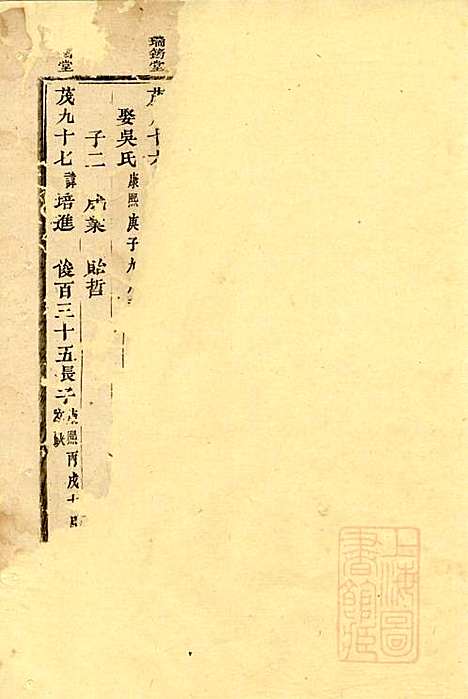 瑞芻堂
茂　十六
娶吳氏康熙庚子九
子二　業　貽哲
茂九十七諱培進　俊百三十五長子康熙丙戌十
堂
上海圖書館藏